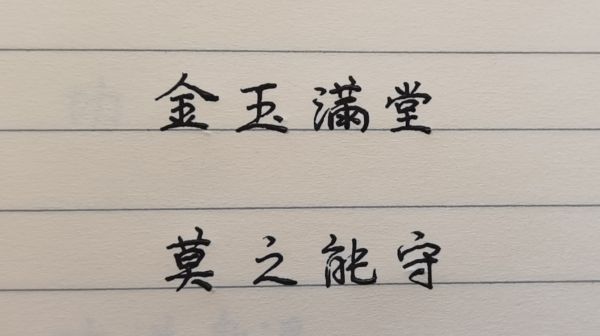 金玉满堂
莫之能守